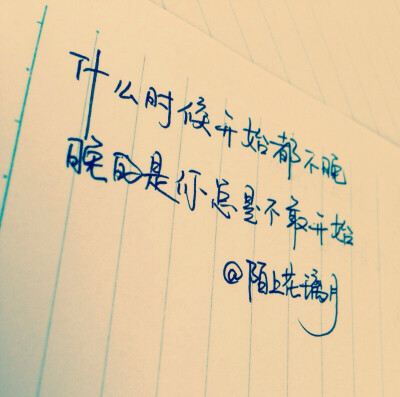 什么时候开始都不晚
晚的是你总是不敢开始
@陌上花璃月